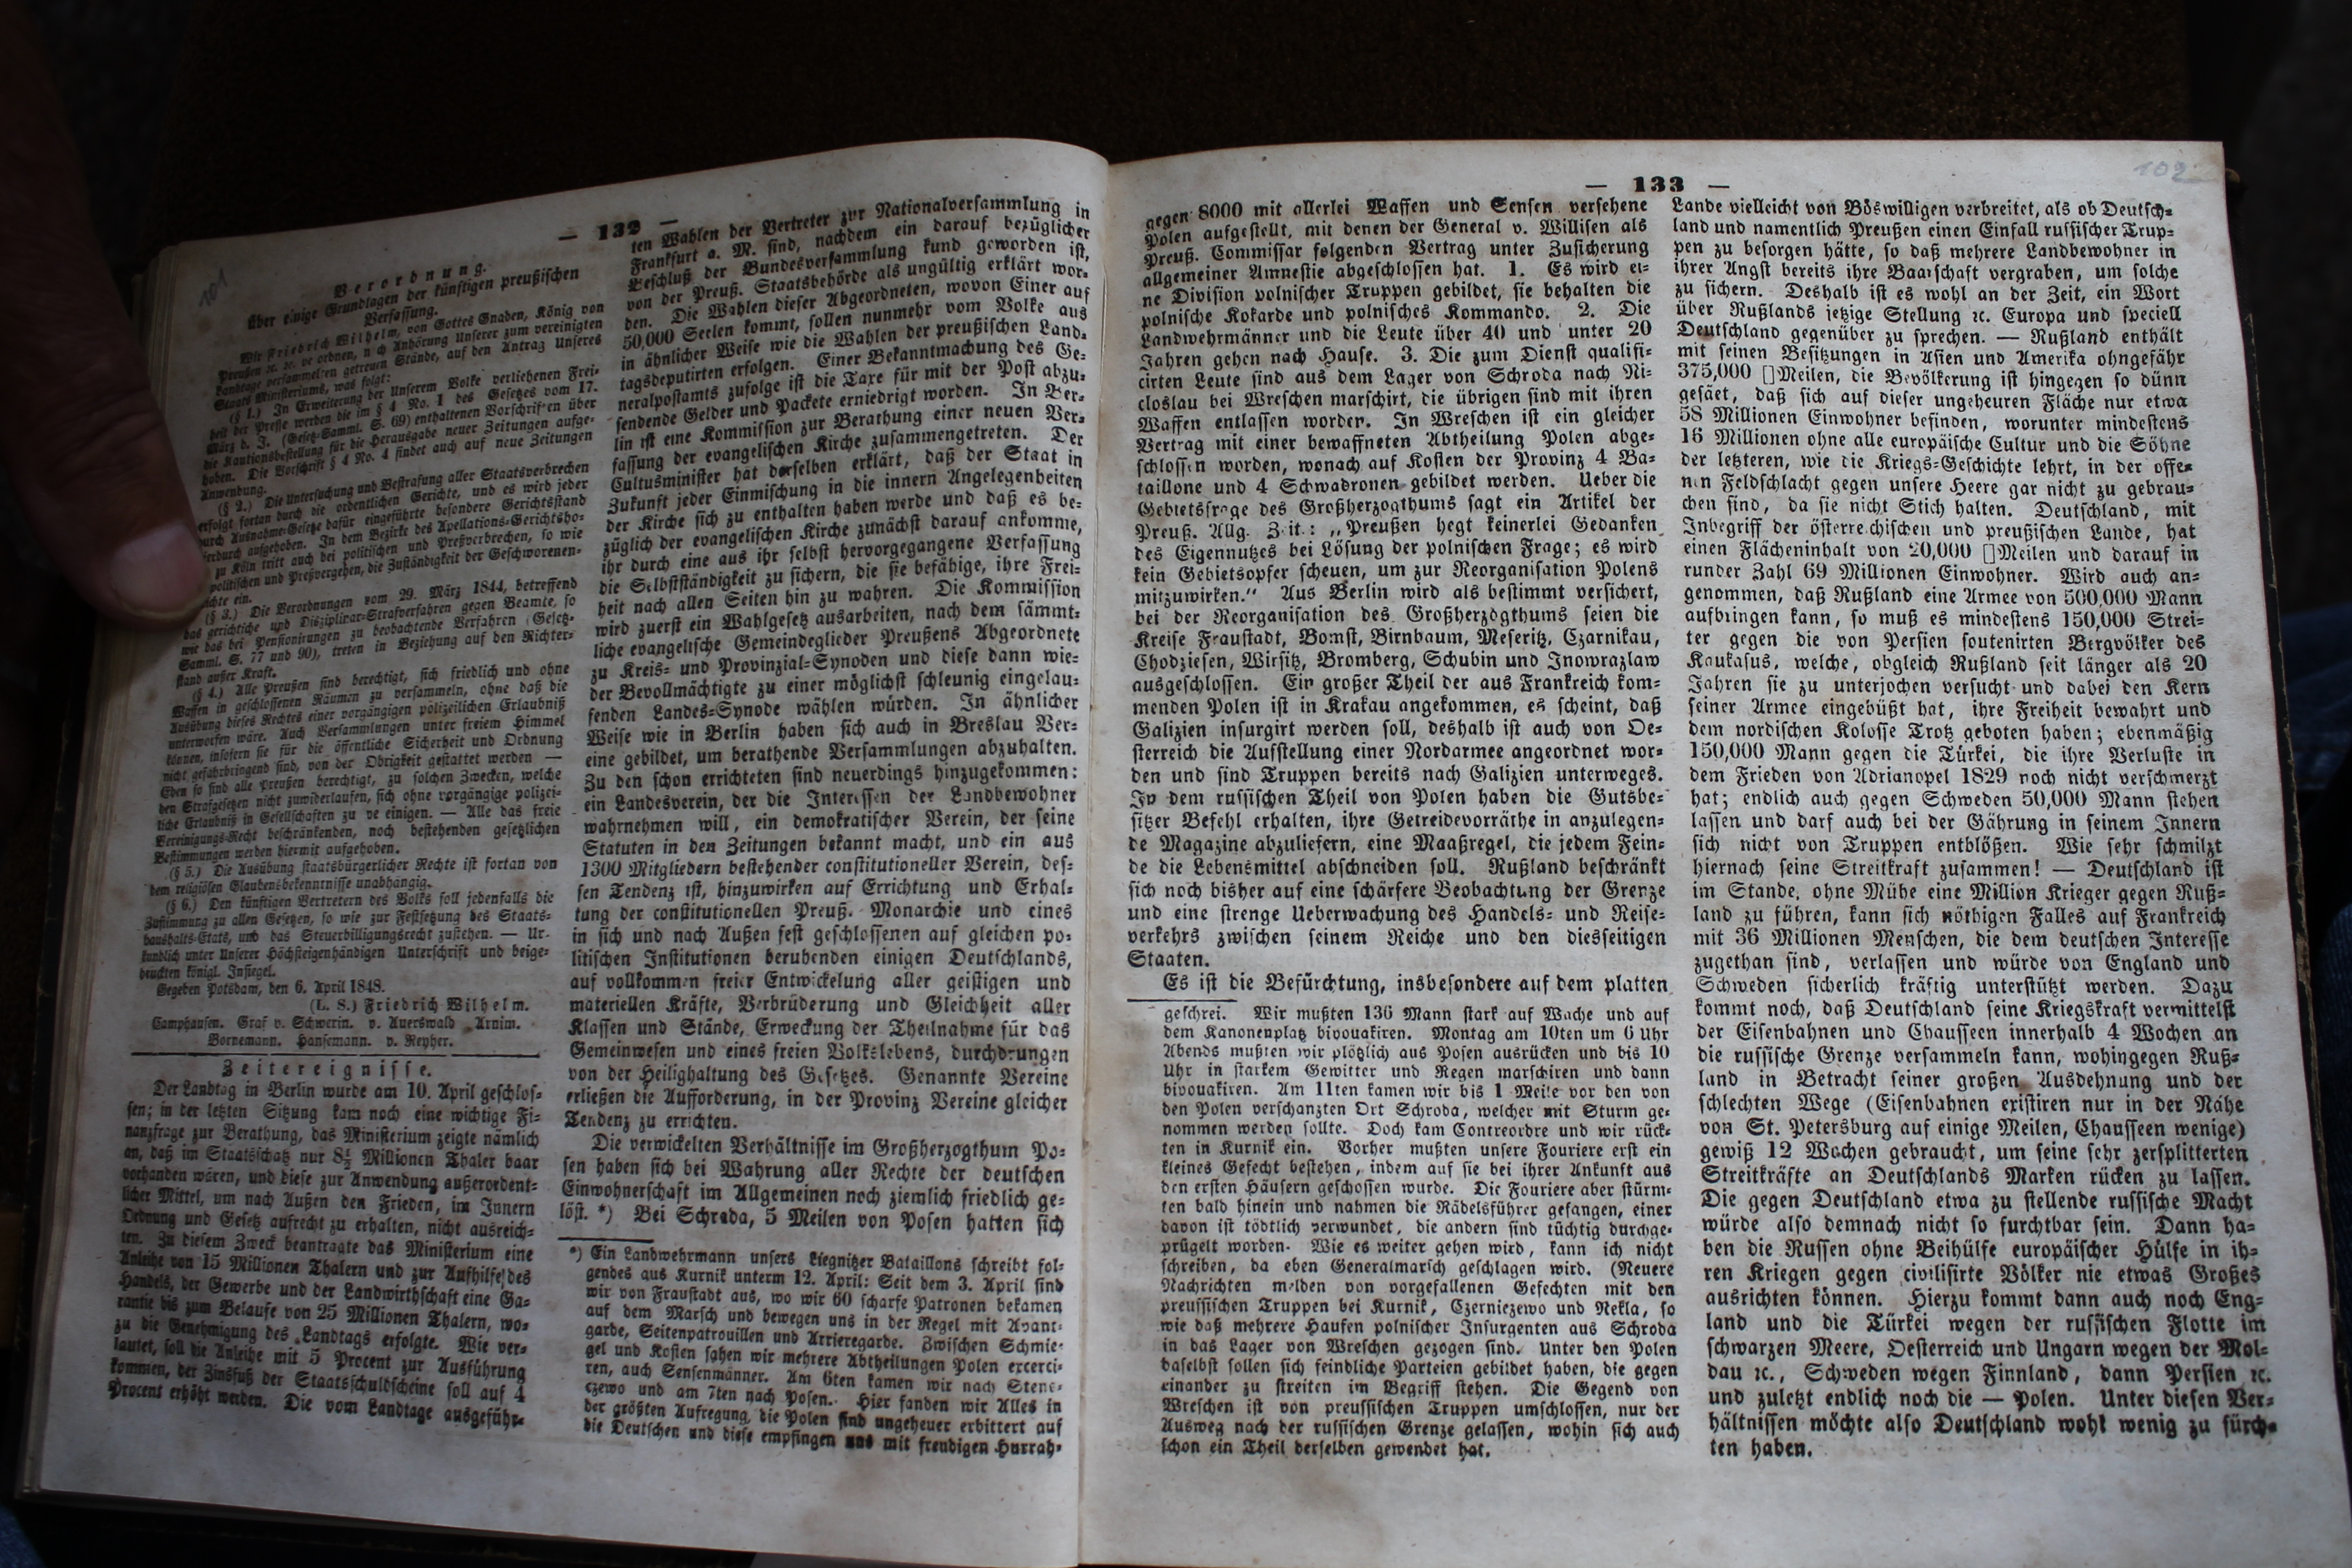 101
— 132 —
Verordnung.
über einige Grundlagen der künftigen preußischen
Verfassung.
Wir Friedrich Wilhelm, von Gottes Gnaden, König von
Preußen ꝛc. ꝛc. ve ordnen, n ch Anhörung Unserer zum vereinigten
Landtage versammel en getreuen Stände, auf den Antrag Unseres
Staats Ministeriums, was folgt:
(§ 1.) In Erweiterung der Unserem Volke verliehenen Frei-
heit der Presse werden die im § 4 No. 1 des Gesetzes vom 17.
März d. J. (Gesetz-Samml. S. 69) enthaltenen Vorschrif en über
die Kautionsbestellung für die Herausgabe neuer Zeitungen aufge-
hoben. Die Vorschrift § 4 No. 4 findet auch auf neue Zeitungen
Anwendung.
(§ 2.) Die Untersuchung und Bestrafung aller Staatsverbrechen
erfolgt fortan durch die ordentlichen Gerichte, und es wird jeder
durch Ausnahme-Gesetze dafür eingeführte besondere Gerichtsstand
ierdurch aufgehoben. In dem Bezirke des Apellations-Gerichtsho-
zu Köln tritt auch bei politischen und Preßverbrechen, so wie
politischen und Preßvergehen, die Zuständigkeit der Geschworenen-
ichte ein.
(§ 3.) Die Verordnungen vom 29. März 1844, betreffend
das gerichtliche und Disziplinar-Strafverfahren gegen Beamte, so
wie das bei Pensionirungen zu beobachtende Verfahren (Gesetz-
Samml. S. 77 und 90), treten in Beziehung auf den Richter-
stand außer Kraft.
(§ 4.) Alle Preußen sind berechtigt, sich friedlich und ohne
Waffen in geschlossenen Räumen zu versammeln, ohne daß die
Ausübung dieses Rechtes einer vorgängigen polizeilichen Erlaubniß
unterworfen wäre. Auch Versammlungen unter freiem Himmel
können, insofern sie für die öffentliche Sicherheit und Ordnung
nicht gefahrbringend sind, von der Obrigkeit gestattet werden —
Eben so sind alle Preußen berechtigt, zu solchen Zwecken, welche
den Strafgesetzen nicht zuwiderlaufen, sich ohne vorgängige polizei-
liche Erlaubniß in Gesellschaften zu ve einigen. — Alle das freie
Vereinigungs-Recht beschränkenden, noch bestehenden gesetzlichen
Bestimmungen werden hiermit aufgehoben.
(§ 5.) Die Ausübung staatsbürgerlicher Rechte ist fortan von
dem religiösen Glaubensbekenntnisse unabhängig.
(§ 6.) Den künftigen Vertretern des Volks soll jedenfalls die
Zustimmung zu allen Gesetzen, so wie zur Festsetzung des Staats-
haushalts-Etats, und das Steuerbilligungsrecht zustehen. — Ur-
kundlich unter Unserer Höchsteigenhändigen Unterschrift und beige-
druckten königl. Insiegel.
Gegeben Potsdam, den 6. April 1848.
(L. S.) Friedrich Wilhelm.
Camphausen. Graf v. Schwerin. v. Auerswald Arnim.
Bornemann. Hansemann. v. Reyher.
Zeitereignisse.
Der Landtag in Berlin wurde am 10. April geschlos-
sen; in der letzten Sitzung kam noch eine wichtige Fi-
nanzfrage zur Berathung, das Ministerium zeigte nämlich
an, daß im Staatsschatz nur 8½ Millionen Thaler baar
vorhanden wären, und diese zur Anwendung außerordent-
licher Mittel, um nach Außen den Frieden, im Innern
Ordnung und Gesetz aufrecht zu erhalten, nicht ausreich-
ten. Zu diesem Zweck beantragte das Ministerium eine
Anleihe von 15 Millionen Thalern und zur Aufhilfe des
Handels, der Gewerbe und der Landwirthschaft eine Ga-
rantie bis zum Belaufe von 25 Millionen Thalern, wo-
zu die Genehmigung des Landtags erfolgte. Wie ver-
lautet, soll die Anleihe mit 5 Procent zur Ausführung
kommen, der Zinsfuß der Staatsschuldscheine soll auf 4
Procent erhöht werden. Die vom Landtage ausgeführ-
ten Wahlen der Vertreter zur Nationalversammlung in
Frankfurt a. M. sind, nachdem ein darauf bezüglicher
Beschluß der Bundesversammlung kund geworden ist,
von der Preuß. Staatsbehörde als ungültig erklärt wor-
den. Die Wahlen dieser Abgeordneten, wovon Einer auf
50,000 Seelen kommt, sollen nunmehr vom Volke aus
in ähnlicher Weise wie die Wahlen der preußischen Land-
tagsdeputirten erfolgen. Einer Bekanntmachung des Ge-
neralpostamts zufolge ist die Taxe für mit der Post abzu-
sendende Gelder und Packete erniedrigt worden. In Ber-
lin ist eine Kommission zur Berathung einer neuen Ver-
fassung der evangelischen Kirche zusammengetreten. Der
Cultusminister hat derselben erklärt, daß der Staat in
Zukunft jeder Einmischung in die innern Angelegenheiten
der Kirche sich zu enthalten haben werde und daß es be-
züglich der evangelischen Kirche zunächst darauf ankomme,
ihr durch eine aus ihr selbst hervorgegangene Verfassung
die Selbstständigkeit zu sichern, die sie befähige, ihre Frei-
heit nach allen Seiten hin zu wahren. Die Kommission
wird zuerst ein Wahlgesetz ausarbeiten, nach dem sämmt-
liche evangelische Gemeindeglieder Preußens Abgeordnete
zu Kreis- und Provinzial-Synoden und diese dann wie-
der Bevollmächtigte zu einer möglichst schleunig eingelau-
fenden Landes-Synode wählen würden. In ähnlicher
Weise wie in Berlin haben sich auch in Breslau Ver-
eine gebildet, um berathende Versammlungen abzuhalten.
Zu den schon errichteten sind neuerdings hinzugekommen:
ein Landesverein, der die Interessen der Landbewohner
wahrnehmen will, ein demokratischer Verein, der seine
Statuten in den Zeitungen bekannt macht, und ein aus
1300 Mitgliedern bestehender constitutioneller Verein, des-
sen Tendenz ist, hinzuwirken auf Errichtung und Erhal-
tung der constitutionellen Preuß. Monarchie und eines
in sich und nach Außen fest geschlossenen auf gleichen po-
litischen Institutionen beruhenden einigen Deutschlands,
auf vollkommen freier Entwickelung aller geistigen und
materiellen Kräfte, Verbrüderung und Gleichheit aller
Klassen und Stände, Erweckung der Theilnahme für das
Gemeinwesen und eines freien Volkslebens, durchdrungen
von der Heilighaltung des Gesetzes. Genannte Vereine
erließen die Aufforderung, in der Provinz Vereine gleicher
Tendenz zu errichten.
Die verwickelten Verhältnisse im Großherzogthum Po-
sen haben sich bei Wahrung aller Rechte der deutschen
Einwohnerschaft im Allgemeinen noch ziemlich friedlich ge-
löst. *) Bei Schroda, 5 Meilen von Posen hatten sich
*) Ein Landwehrmann unsers Liegnitzer Bataillons schreibt fol-
gendes aus Kurnik unterm 12. April: Seit dem 3. April sind
wir von Fraustadt aus, wo wir 60 scharfe Patronen bekamen
auf dem Marsch und bewegen uns in der Regel mit Avant-
garde, Seitenpatrouillen und Arrieregarde. Zwischen Schmie-
gel und Kosten sahen wir mehrere Abtheilungen Polen exercir-
ren, auch Sensenmänner. Am 6ten kamen wir nach Stene-
czewo und am 7ten nach Posen. Hier fanden wir Alles in
der größten Aufregung, die Polen sind ungeheuer erbittert auf
die Deutschen und diese empfingen uns mit freudigen Hurrah-
102
— 133 —
gegen 8000 mit allerlei Waffen und Sensen versehene
Polen aufgestellt, mit denen der General v. Willisen als
Preuß. Commissar folgenden Vertrag unter Zusicherung
allgemeiner Amnestie abgeschlossen hat. 1. Es wird ei-
ne Division polnischer Truppen gebildet, sie behalten die
polnische Kokarde und polnisches Kommando. 2. Die
Landwehrmänner und die Leute über 40 und unter 20
Jahren gehen nach Hause. 3. Die zum Dienst qualifi-
cirten Leute sind aus dem Lager von Schroda nach Ni-
closlau bei Wreschen marschirt, die übrigen sind mit ihren
Waffen entlassen worder. In Wreschen ist ein gleicher
Vertrag mit einer bewaffneten Abtheilung Polen abge-
schlossen worden, wonach auf Kosten der Provinz 4 Ba-
taillone und 4 Schwadronen gebildet werden. Ueber die
Gebietsfrage des Großherzogthums sagt ein Artikel der
Preuß. Allg. Zeit.: „Preußen hegt keinerlei Gedanken
des Eigennutzes bei Lösung der polnischen Frage; es wird
kein Gebietsopfer scheuen, um zur Reorganisation Polens
mitzuwirken.“ Aus Berlin wird als bestimmt versichert,
bei der Reorganisation des Großherzogthums seien die
Kreise Fraustadt, Bomst, Birnbaum, Meseritz, Czarnikau,
Chodziesen, Wirsitz, Bromberg, Schubin und Inowrazlaw
ausgeschlossen. Ein großer Theil der aus Frankreich kom-
menden Polen ist in Krakau angekommen, es scheint, daß
Galizien insurgirt werden soll, deshalb ist auch von Oe-
sterreich die Aufstellung einer Nordarmee angeordnet wor-
den und sind Truppen bereits nach Galizien unterweges.
In dem russischen Theil von Polen haben die Gutsbe-
sitzer Befehl erhalten, ihre Getreidevorräthe in anzulegen-
de Magazine abzuliefern, eine Maaßregel, die jedem Fein-
de die Lebensmittel abschneiden soll. Rußland beschränkt
sich noch bisher auf eine schärfere Beobachtung der Grenze
und eine strenge Ueberwachung des Handels- und Reise-
verkehrs zwischen seinem Reiche und den diesseitigen
Staaten.
Es ist die Befürchtung, insbesondere auf dem platten
geschrei. Wir mußten 136 Mann stark auf Wache und auf
dem Kanonenplatz bivouakiren. Montag am 10ten um 6 Uhr
Abends mußten wir plötzlich aus Posen ausrücken und bis 10
Uhr in starkem Gewitter und Regen marschiren und dann
bivouakiren. Am 11ten kamen wir bis 1 Meile vor den von
den Polen verschanzten Ort Schroda, welcher mit Sturm ge-
nommen werden sollte. Doch kam Contreordre und wir rück-
ten in Kurnik ein. Vorher mußten unsere Fouriere erst ein
kleines Gefecht bestehen, indem auf sie bei ihrer Ankunft aus
den ersten Häusern geschossen wurde. Die Fouriere aber stürm-
ten bald hinein und nahmen die Rädelsführer gefangen, einer
davon ist tödtlich verwundet, die andern sind tüchtig durchge-
prügelt worden. Wie es weiter gehen wird, kann ich nicht
schreiben, da eben Generalmarsch geschlagen wird. (Neuere
Nachrichten melden von vorgefallenen Gefechten mit den
preussischen Truppen bei Kurnik, Czerniezewo und Nekla, so
wie daß mehrere Haufen polnischer Insurgenten aus Schroda
in das Lager von Wreschen gezogen sind. Unter den Polen
daselbst sollen sich feindliche Parteien gebildet haben, die gegen
einander zu streiten im Begriff stehen. Die Gegend von
Wreschen ist von preussischen Truppen umschlossen, nur der
Ausweg nach der russischen Grenze gelassen, wohin sich auch
schon ein Theil derselben gewendet hat.
Lande vielleicht von Böswilligen verbreitet, als ob Deutsch-
land und namentlich Preußen einen Einfall russischer Trup-
pen zu besorgen hätte, so daß mehrere Landbewohner in
ihrer Angst bereits ihre Baarschaft vergraben, um solche
zu sichern. Deshalb ist es wohl an der Zeit, ein Wort
über Rußlands jetzige Stellung ꝛc. Europa und speciell
Deutschland gegenüber zu sprechen. — Rußland enthält
mit seinen Besitzungen in Asien und Amerika ohngefähr
375,000 []Meilen, die Bevölkerung ist hingegen so dünn
gesäet, daß sich auf dieser ungeheuren Fläche nur etwa
58 Millionen Einwohner befinden, worunter mindestens
16 Millionen ohne alle europäische Cultur und die Söhne
der letzteren, wie die Kriegs-Geschichte lehrt, in der offe-
nen Feldschlacht gegen unsere Heere gar nicht zu gebrau-
chen sind, da sie nicht Stich halten. Deutschland, mit
Inbegriff der österreichischen und preußischen Lande, hat
einen Flächeninhalt von 20,000 []Meilen und darauf in
runder Zahl 69 Millionen Einwohner. Wird auch an-
genommen, daß Rußland eine Armee von 500,000 Mann
aufbringen kann, so muß es mindestens 150,000 Strei-
ter gegen die von Persien soutenirten Bergvölker des
Kaukasus, welche, obgleich Rußland seit länger als 20
Jahren sie zu unterjochen versucht und dabei den Kern
seiner Armee eingebüßt hat, ihre Freiheit bewahrt und
dem nordischen Kolosse Trotz geboten haben; ebenmäßig
150,000 Mann gegen die Türkei, die ihre Verluste in
dem Frieden von Adrianopel 1829 noch nicht verschmerzt
hat; endlich auch gegen Schweden 50,000 Mann stehen
lassen und darf auch bei der Gährung in seinem Innern
sich nicht von Truppen entblößen. Wie sehr schmilzt
hiernach seine Streitkraft zusammen! — Deutschland ist
im Stande, ohne Mühe eine Million Krieger gegen Ruß-
land zu führen, kann sich nöthigen Falles auf Frankreich
mit 36 Millionen Menschen, die dem deutschen Interesse
zugethan sind, verlassen und würde von England und
Schweden sicherlich kräftig unterstützt werden. Dazu
kommt noch, daß Deutschland seine Kriegskraft vermittelst
der Eisenbahnen und Chausseen innerhalb 4 Wochen an
die russische Grenze versammeln kann, wohingegen Ruß-
land in Betracht seiner großen Ausdehnung und der
schlechten Wege (Eisenbahnen existiren nur in der Nähe
von St. Petersburg auf einige Meilen, Chausseen wenige)
gewiß 12 Wochen gebraucht, um seine sehr zersplitterten
Streitkräfte an Deutschlands Marken rücken zu lassen.
Die gegen Deutschland etwa zu stellende russische Macht
würde also demnach nicht so furchtbar sein. Dann ha-
ben die Russen ohne Beihülfe europäischer Hülfe in ih-
ren Kriegen gegen civilisirte Völker nie etwas Großes
ausrichten können. Hierzu kommt dann auch noch Eng-
land und die Türkei wegen der russischen Flotte im
schwarzen Meere, Oesterreich und Ungarn wegen der Mol-
dau ꝛc., Schweden wegen Finnland, dann Persien ꝛc.
und zuletzt endlich noch die — Polen. Unter diesen Ver-
hältnissen möchte also Deutschland wohl wenig zu fürch-
ten haben.